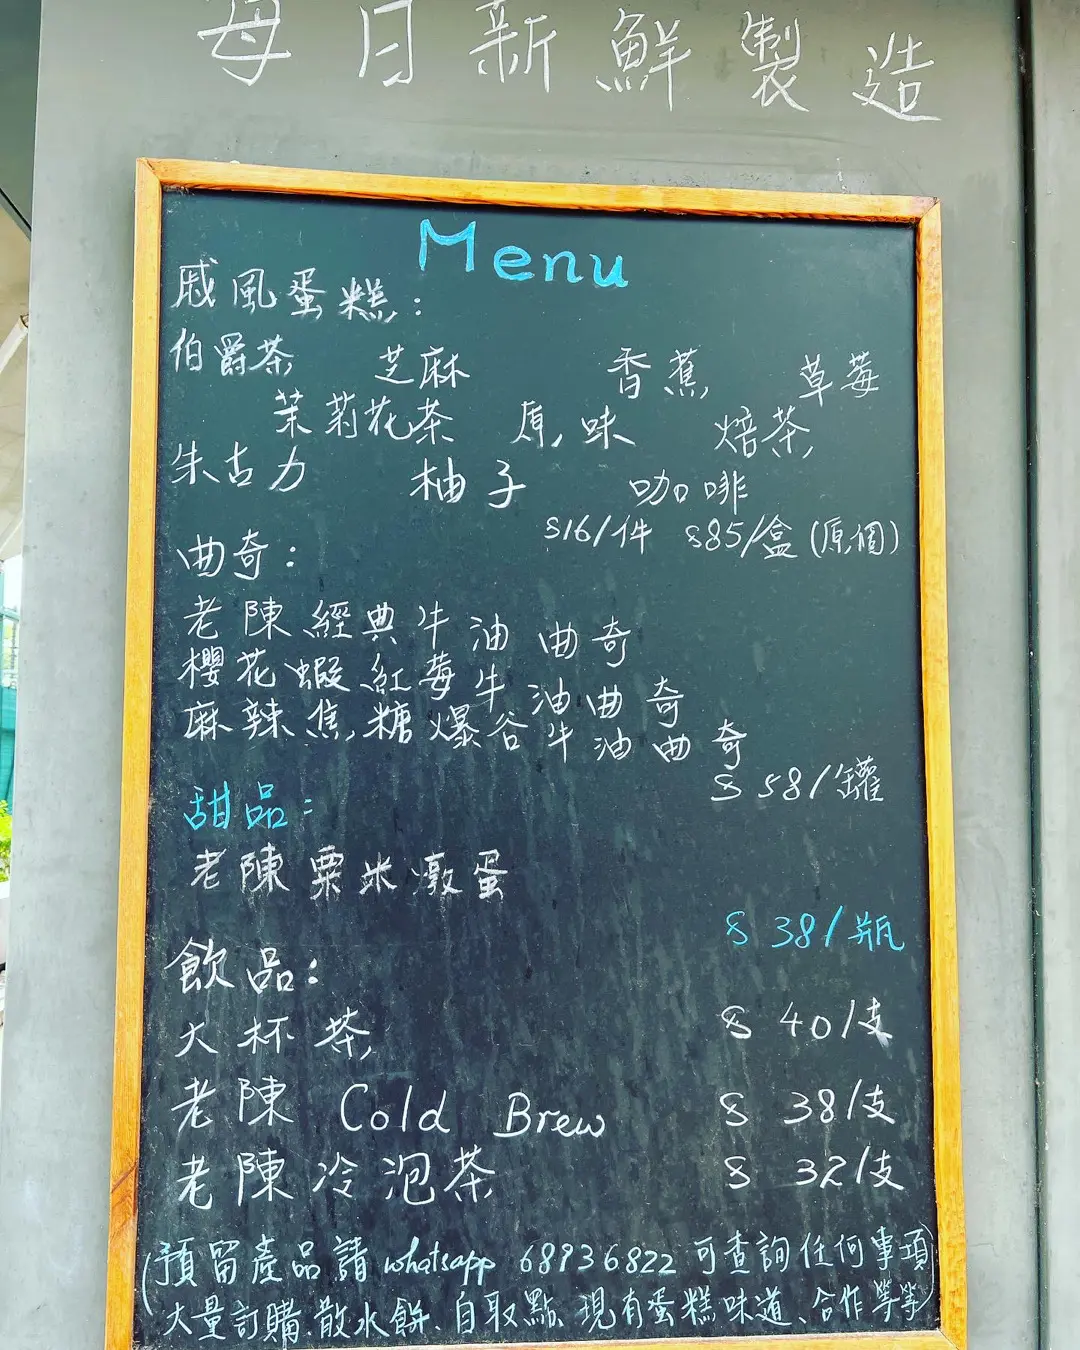 每日新鮮製造
Menu
戚風蛋糕:
伯爵茶 芝麻 香蕉 草莓
茉莉花茶 原味 焙茶
朱古力 柚子 咖啡
$16/件 $85/盒(原個)
曲奇:
老陳經典牛油曲奇
櫻花蝦紅莓牛油曲奇
麻辣焦糖爆谷牛油曲奇
$58/罐
甜品:
老陳粟米燉蛋
$38/瓶
飲品:
大杯茶 $40/支
老陳 Cold Brew $38/支
老陳冷泡茶 $32/支
(預留產品請whatsapp 68936822 可查詢任何事項
大量訂購、散水餅、自取點、現有蛋糕味道、合作等等)